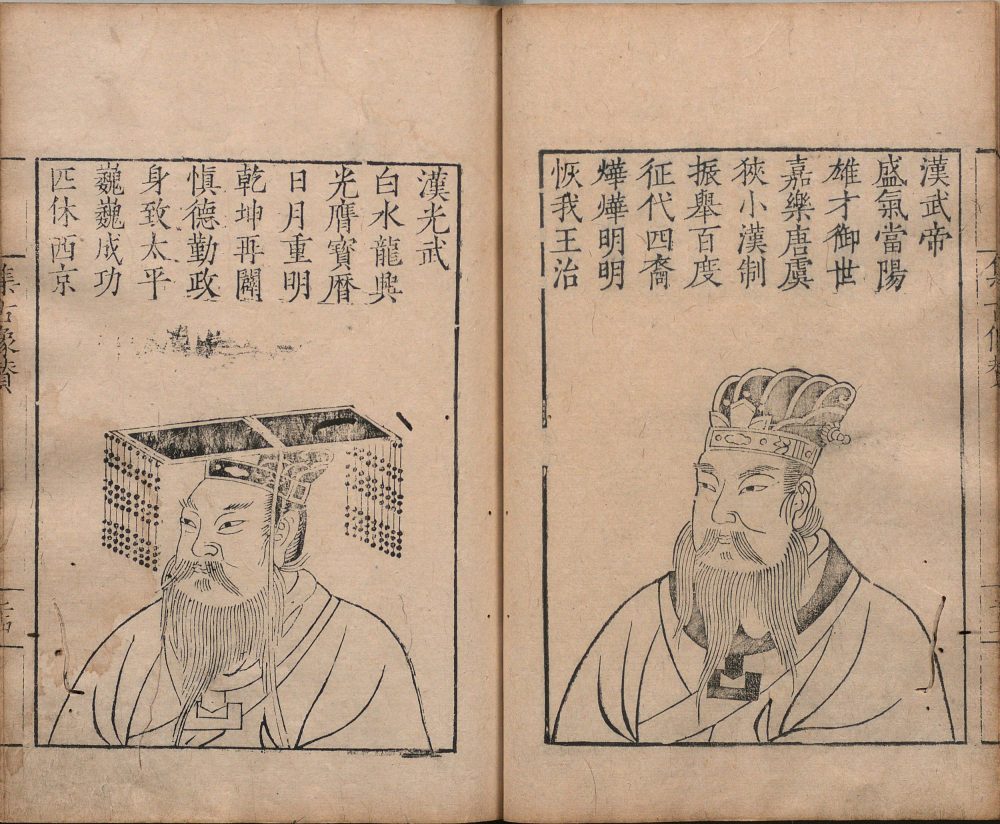 漢武帝
盛氣當陽
雄才御世
嘉樂唐虞
狹小漢制
振舉百度
征代四裔
燁燁明明
恢我王治
漢光武
白水龍興
光膺寶曆
日月重明
乾坤再闢
慎德勤政
身致太平
巍巍成功
匹休西京
集古像贊